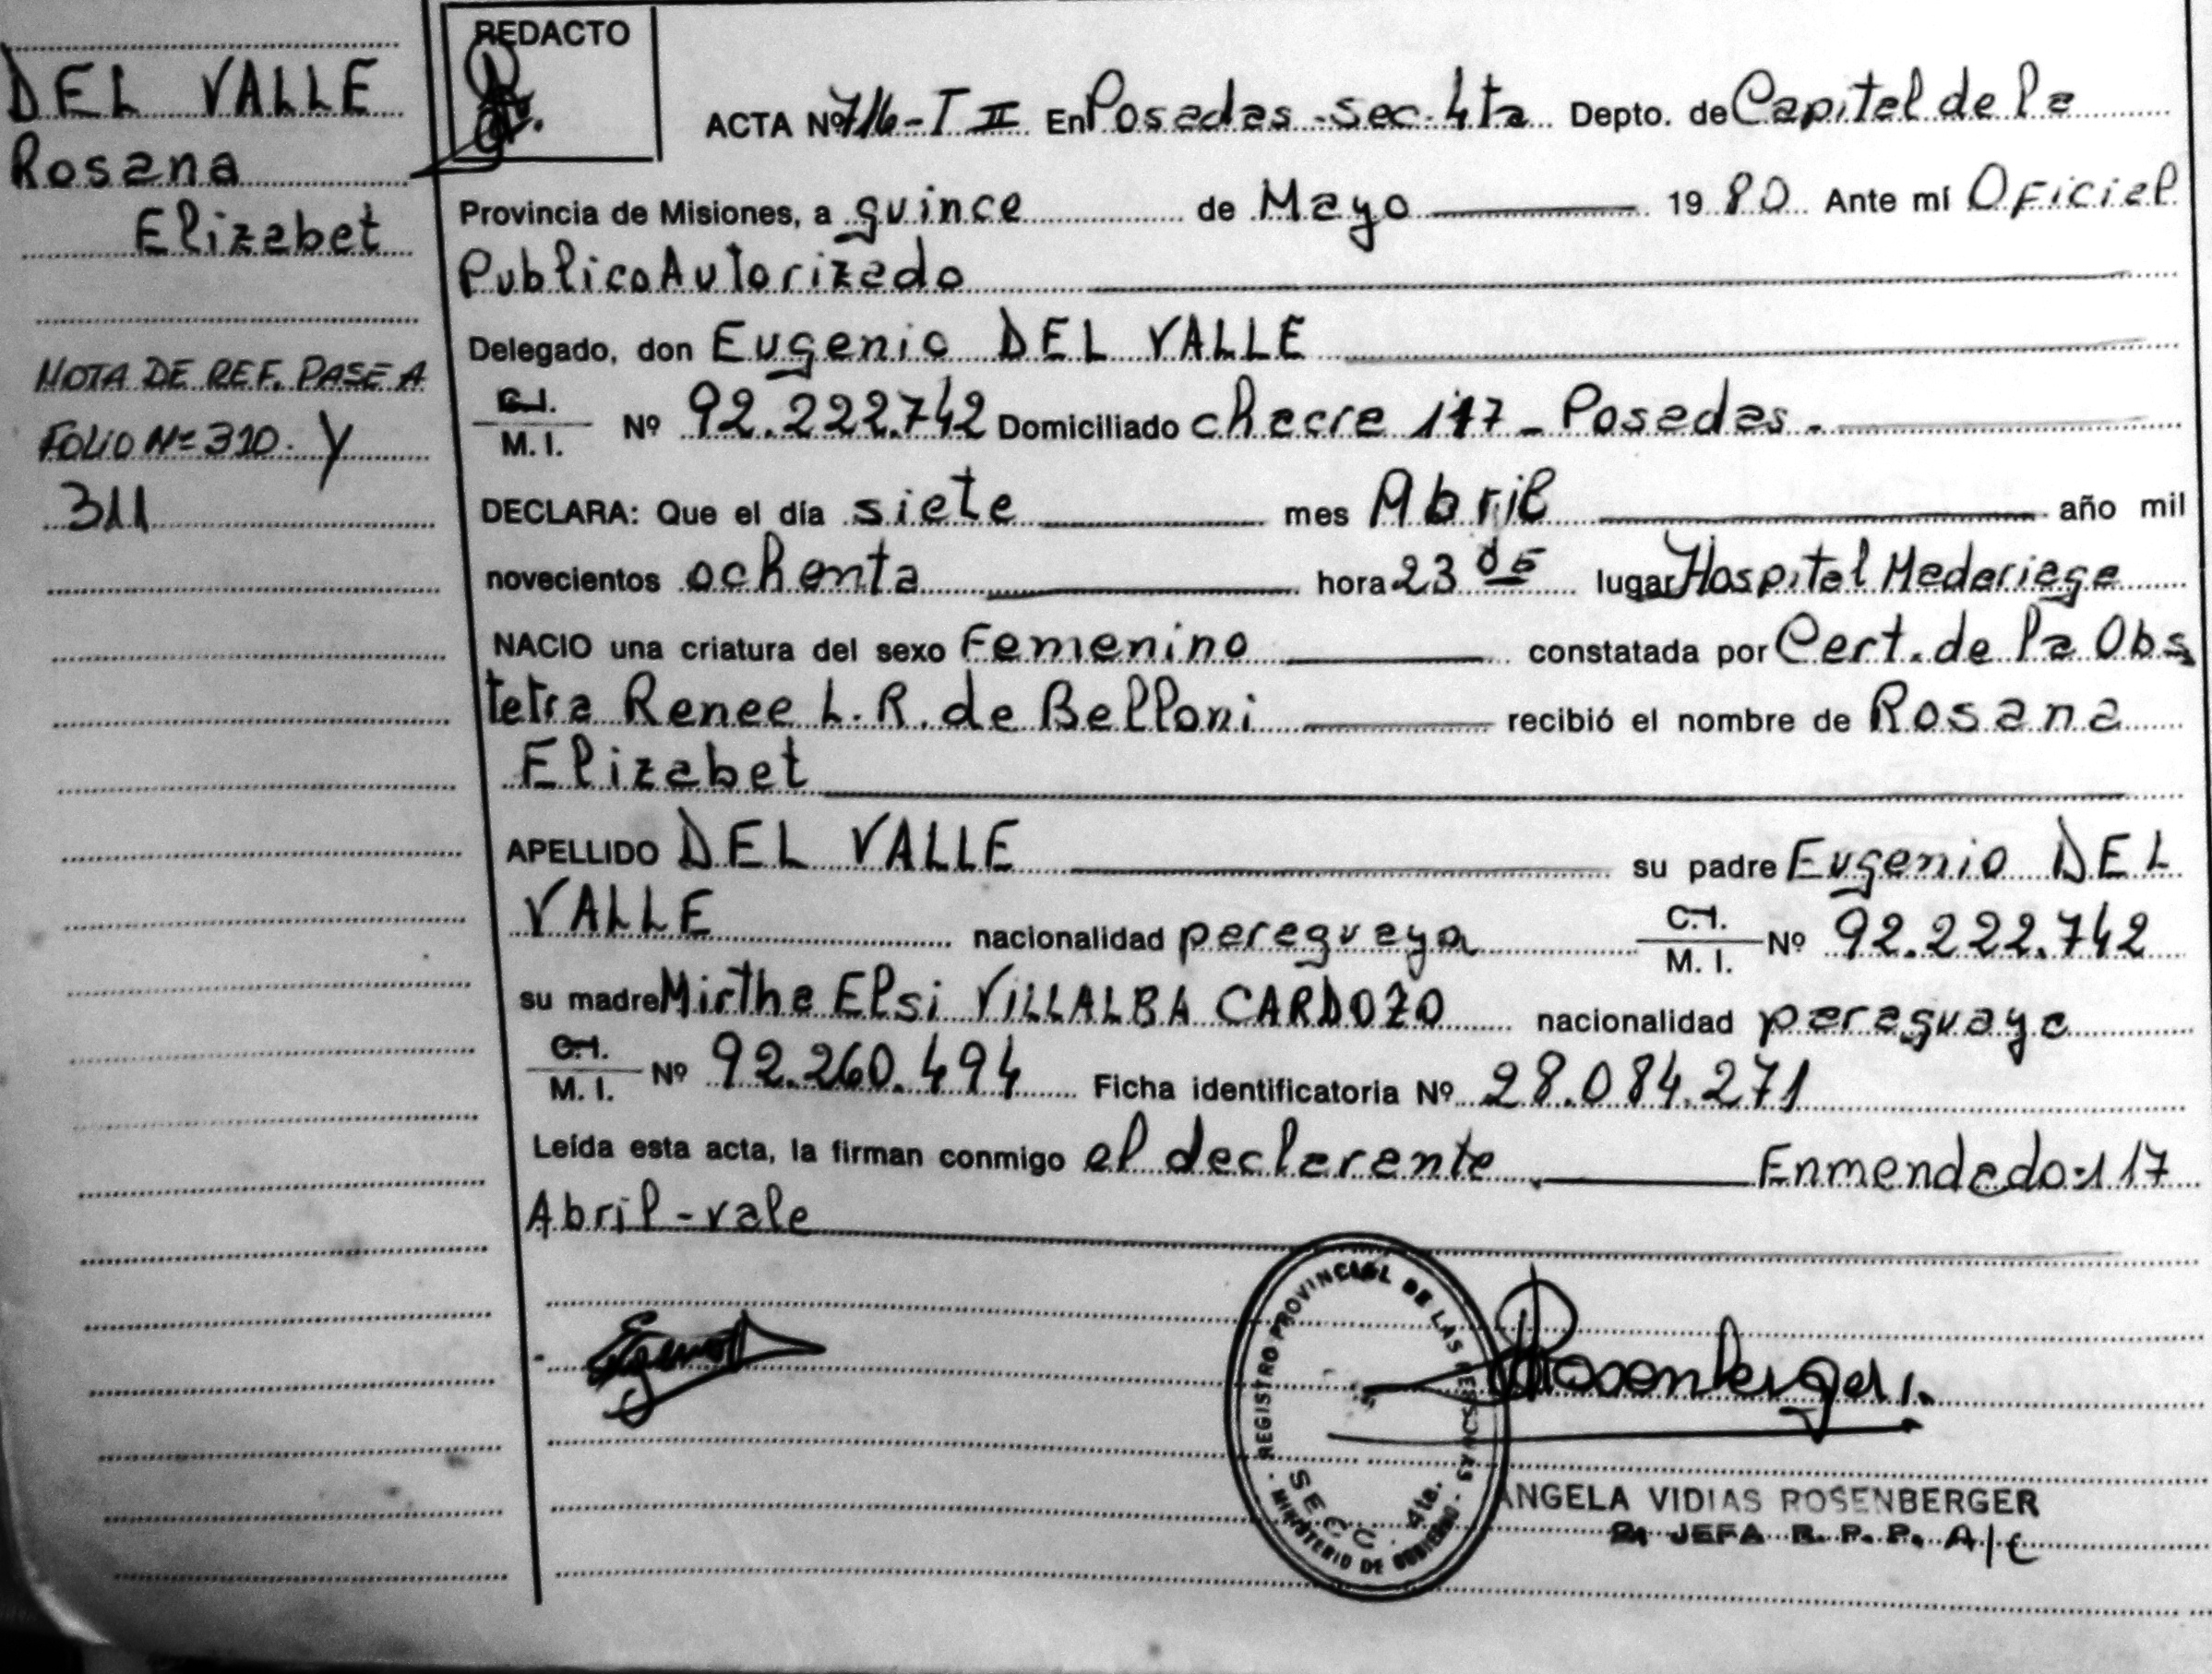 DEL VALLE
Rosana
Elizabet
NOTA DE REF. PASE A
FOLIO Nº 310. Y
311
REDACTO
ACTA Nº 716-T II En Posadas-sec. 4ta Depto. de Capital de la
Provincia de Misiones, a quince de Mayo 1980 Ante mí Oficial
Publico Autorizado
Delegado, don Eugenio DEL VALLE
C.I. M.I. Nº 92.222.742 Domiciliado chacra 117 - Posadas.
DECLARA: Que el día siete mes Abril año mil
novecientos ochenta hora 23 05 lugar Hospital Madariaga
NACIO una criatura del sexo Femenino constatada por Cert. de la Obs
tetra Renee L. R. de Belloni recibió el nombre de Rosana
Elizabet
APELLIDO DEL VALLE su padre Eugenio DEL
VALLE nacionalidad paraguaya C.I. M.I. Nº 92.222.742
su madre Mirtha Elsi VILLALBA CARDOZO nacionalidad paraguaya
C.I. M.I. Nº 92.260.494 Ficha identificatoria Nº 28.084.271
Leída esta acta, la firman conmigo el declarante Enmendado: 117
Abril - vale
REGISTRO PROVINCIAL DE LAS PERSONAS
SECC. 4ta.
MINISTERIO DE GOBIERNO
Rosenberger
ANGELA VIDIAS ROSENBERGER
JEFA R. P. P. A/C